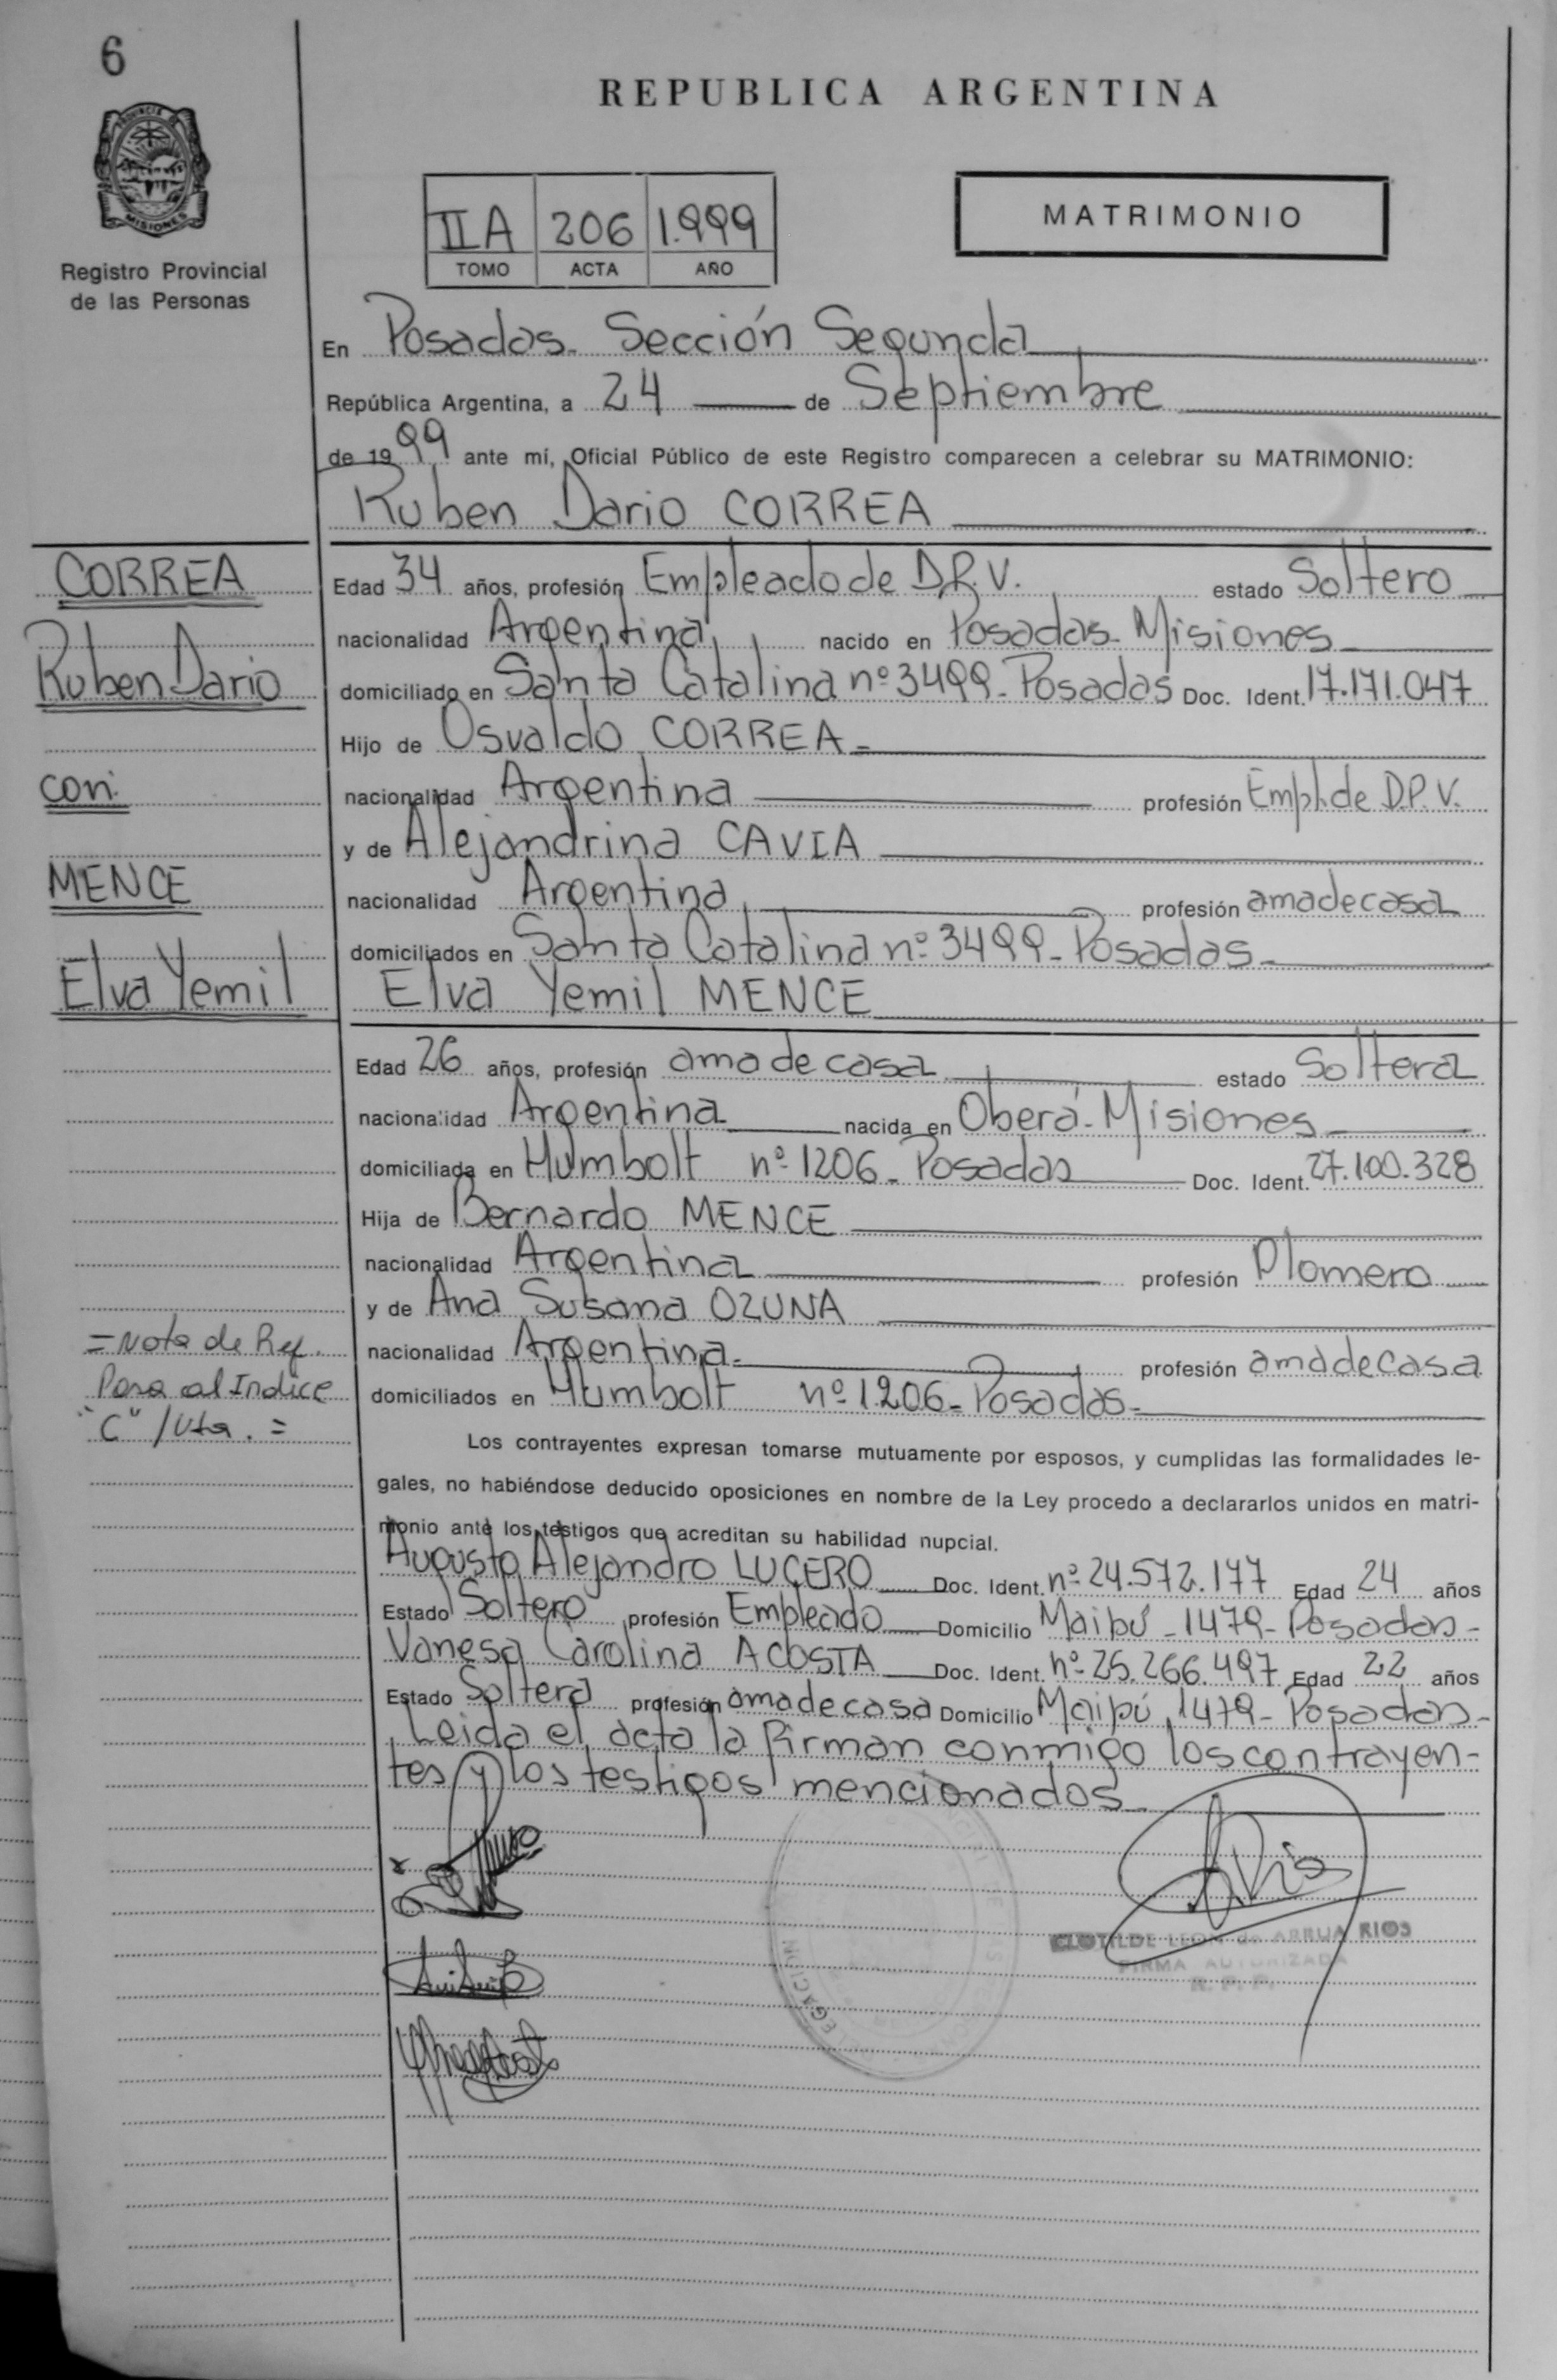 6
REPUBLICA ARGENTINA
PROVINCIA DE
MISIONES
Registro Provincial
de las Personas
II A 206 1.999
TOMO ACTA AÑO
MATRIMONIO
En Posadas. Sección Segunda
República Argentina, a 24 de Septiembre
de 1999 ante mí, Oficial Público de este Registro comparecen a celebrar su MATRIMONIO:
Ruben Dario CORREA
CORREA
Ruben Dario
con:
MENCE
Elva Yemil
Edad 34 años, profesión Empleado de D.P.V. estado Soltero
nacionalidad Argentina nacido en Posadas. Misiones
domiciliado en Santa Catalina nº 3499 - Posadas Doc. Ident. 17.171.047
Hijo de Osvaldo CORREA -
nacionalidad Argentina profesión Empl. de D.P.V.
y de Alejandrina CAVIA
nacionalidad Argentina profesión ama de casa
domiciliados en Santa Catalina nº 3499 - Posadas -
Elva Yemil MENCE
Edad 26 años, profesión ama de casa estado Soltera
nacionalidad Argentina nacida en Oberá - Misiones
domiciliada en Humbolt nº 1206 - Posadas Doc. Ident. 27.100.328
Hija de Bernardo MENCE
nacionalidad Argentina profesión Plomero
y de Ana Susana OZUNA
nacionalidad Argentina. profesión ama de casa
domiciliados en Humbolt nº 1.206 - Posadas -
= Nota de Ref.
Pasa al Indice
"C" / Vta. =
Los contrayentes expresan tomarse mutuamente por esposos, y cumplidas las formalidades le-
gales, no habiéndose deducido oposiciones en nombre de la Ley procedo a declararlos unidos en matri-
monio ante los testigos que acreditan su habilidad nupcial.
Augusto Alejandro LUCERO Doc. Ident. nº 24.572.177 Edad 24 años
Estado Soltero profesión Empleado Domicilio Maipú - 1479 - Posadas -
Vanesa Carolina ACOSTA Doc. Ident. nº 25.266.497 Edad 22 años
Estado Soltera profesión ama de casa Domicilio Maipú 1479 - Posadas -
Leida el acta la firman conmigo los contrayen-
tes y los testigos mencionados
CLOTILDE LEON de ARRUA RIOS
FIRMA AUTORIZADA
R. P. P.